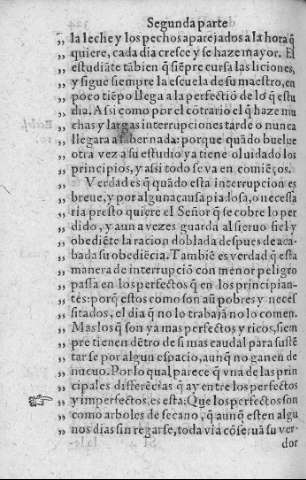 Segunda parte
„ la leche y los pechos aparejados a la hora q̄
„ quiere, cada dia cresce y se haze mayor. El
„ estudiāte tābien q̄ siēpre cursa las liciones,
„ y sigue siempre la escuela de su maestro, en
„ poco tiēpo llega a la perfectiō de lo q̄ estu
„ dia. Assi como por el cōtrario el q̄ haze mu
„ chas y largas interrupciones tarde o nunca
„ llegara a saber nada: porque quādo buelue
„ otra vez a su estudio ya tiene oluidado los
„ principios, y assi todo se va en comiēços.
„ Verdad es q̄ quādo esta interrupcion es
„ breue, y por alguna causa piadosa, o necessa
„ ria presto quiere el Señor q̄ se cobre lo per
„ dido, y aun a vezes guarda al sieruo fiel y
„ obediēte la racion doblada despues de aca
„ bada su obediēcia. Tambiē es verdad q̄ esta
„ manera de interrupciō con menor peligro
„ passa en los perfectos q̄ en los principian-
„ tes: porq̄ estos como son aū pobres y neces
„ sitados, el dia q̄ no lo trabajā no lo comen.
„ Mas los q̄ son ya mas perfectos y ricos, siem
„ pre tienen dētro de si mas caudal para sustē
„ tarse por algun espacio, aunq̄ no ganen de
„ nueuo. Por lo qual parece q̄ vna de las prin
„ cipales differēcias q̄ ay entre los perfectos
„ y imperfectos, es esta: Que los perfectos son
„ como arboles de secano, q̄ aunq̄ esten algu
„ nos dias sin regarse, toda via cōseruā su ver-
dor